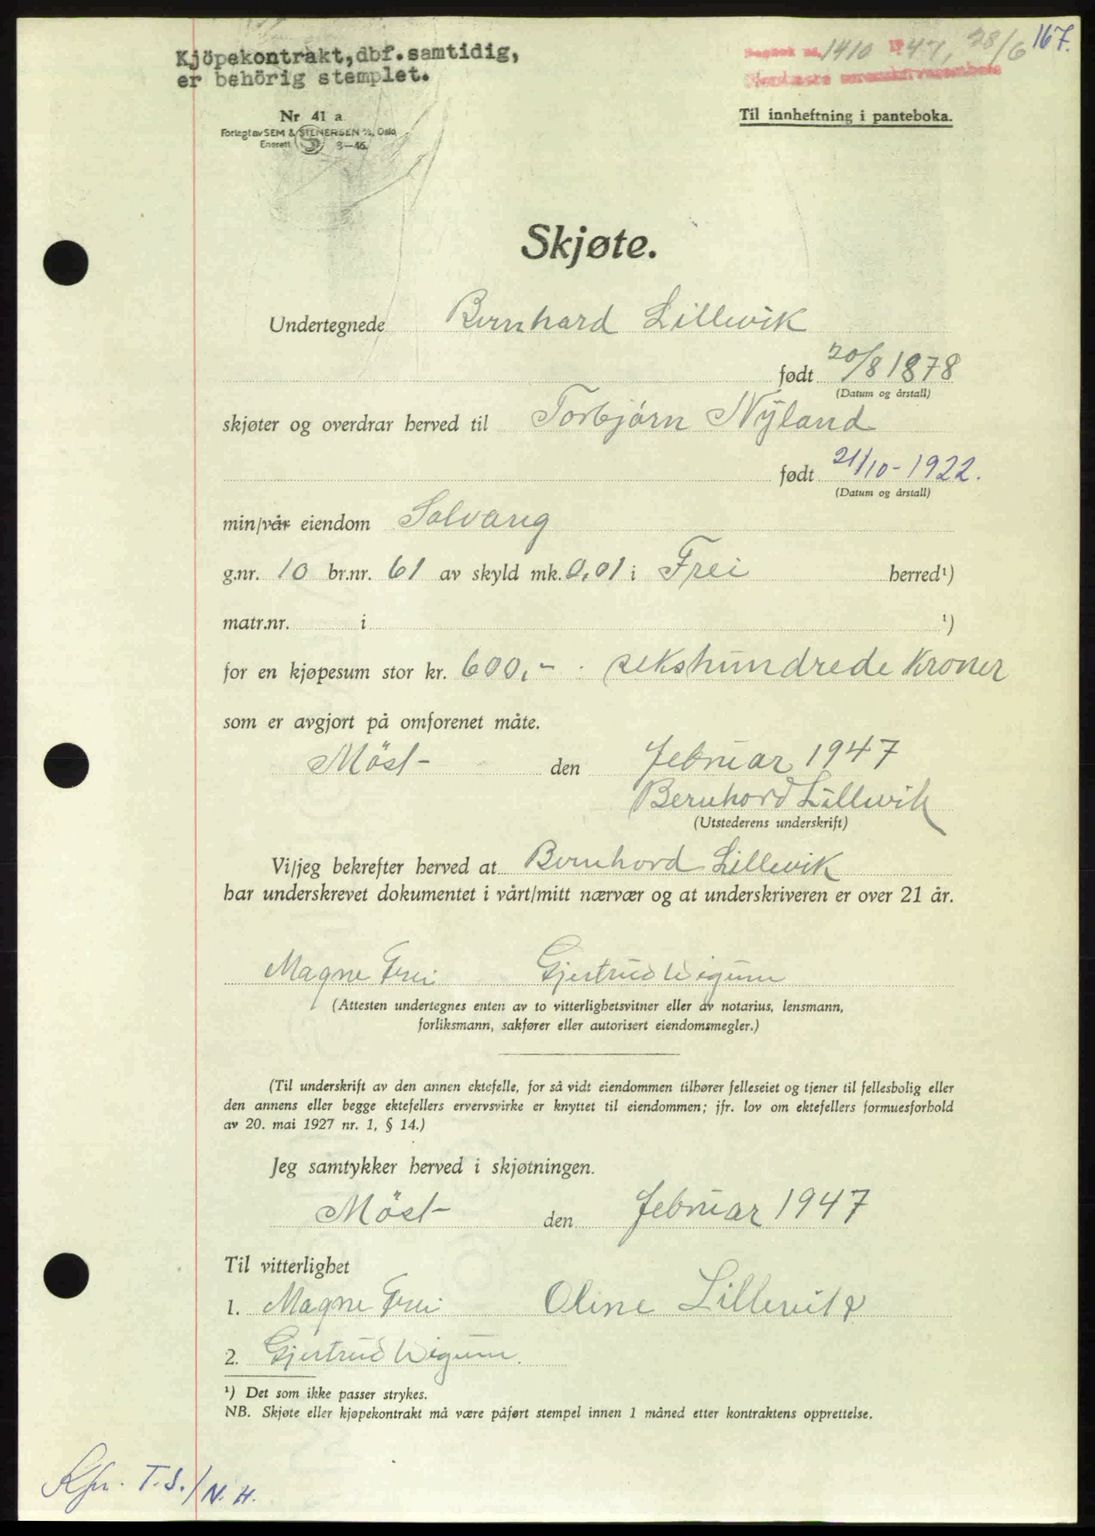 Kjöpekontrakt, dbf. samtidig,
er behörig stemplet.
1410 1947, 28/6 167.
Nr 41 a
Forlegt av SEM & STENERSEN A/S, Oslo
Enerett 8-46.
Til innheftning i panteboka.
Skjøte.
Undertegnede Bernhard Lillevik
født 20/8 1878
(Datum og årstall)
skjøter og overdrar herved til Torbjörn Nyland
født 21/10-1922.
(Datum og årstall)
min/vår eiendom Solvang
g.nr. 10 br.nr. 61 av skyld mk. 0,01 i Frei herred¹)
matr.nr. i ¹)
for en kjøpesum stor kr. 600,- sekshundrede Kroner
som er avgjort på omforenet måte.
Möst den februar 1947
Bernhard Lillevik
(Utstederens underskrift)
Vi/jeg bekrefter herved at Bernhard Lillevik
har underskrevet dokumentet i vårt/mitt nærvær og at underskriveren er over 21 år.
Magne Frei Gjertrud Wigum
(Attesten undertegnes enten av to vitterlighetsvitner eller av notarius, lensmann,
forliksmann, sakfører eller autorisert eiendomsmegler.)
(Til underskrift av den annen ektefelle, for så vidt eiendommen tilhører felleseiet og tjener til fellesbolig eller
den annens eller begge ektefellers ervervsvirke er knyttet til eiendommen; jfr. lov om ektefellers formuesforhold
av 20. mai 1927 nr. 1, § 14.)
Jeg samtykker herved i skjøtningen.
Möst den februar 1947
Til vitterlighet
1. Magne Frei Oline Lillevik
2. Gjertrud Wigum.
¹) Det som ikke passer strykes.
NB. Skjøte eller kjøpekontrakt må være påført stempel innen 1 måned etter kontraktens opprettelse.
T.S./N.H.